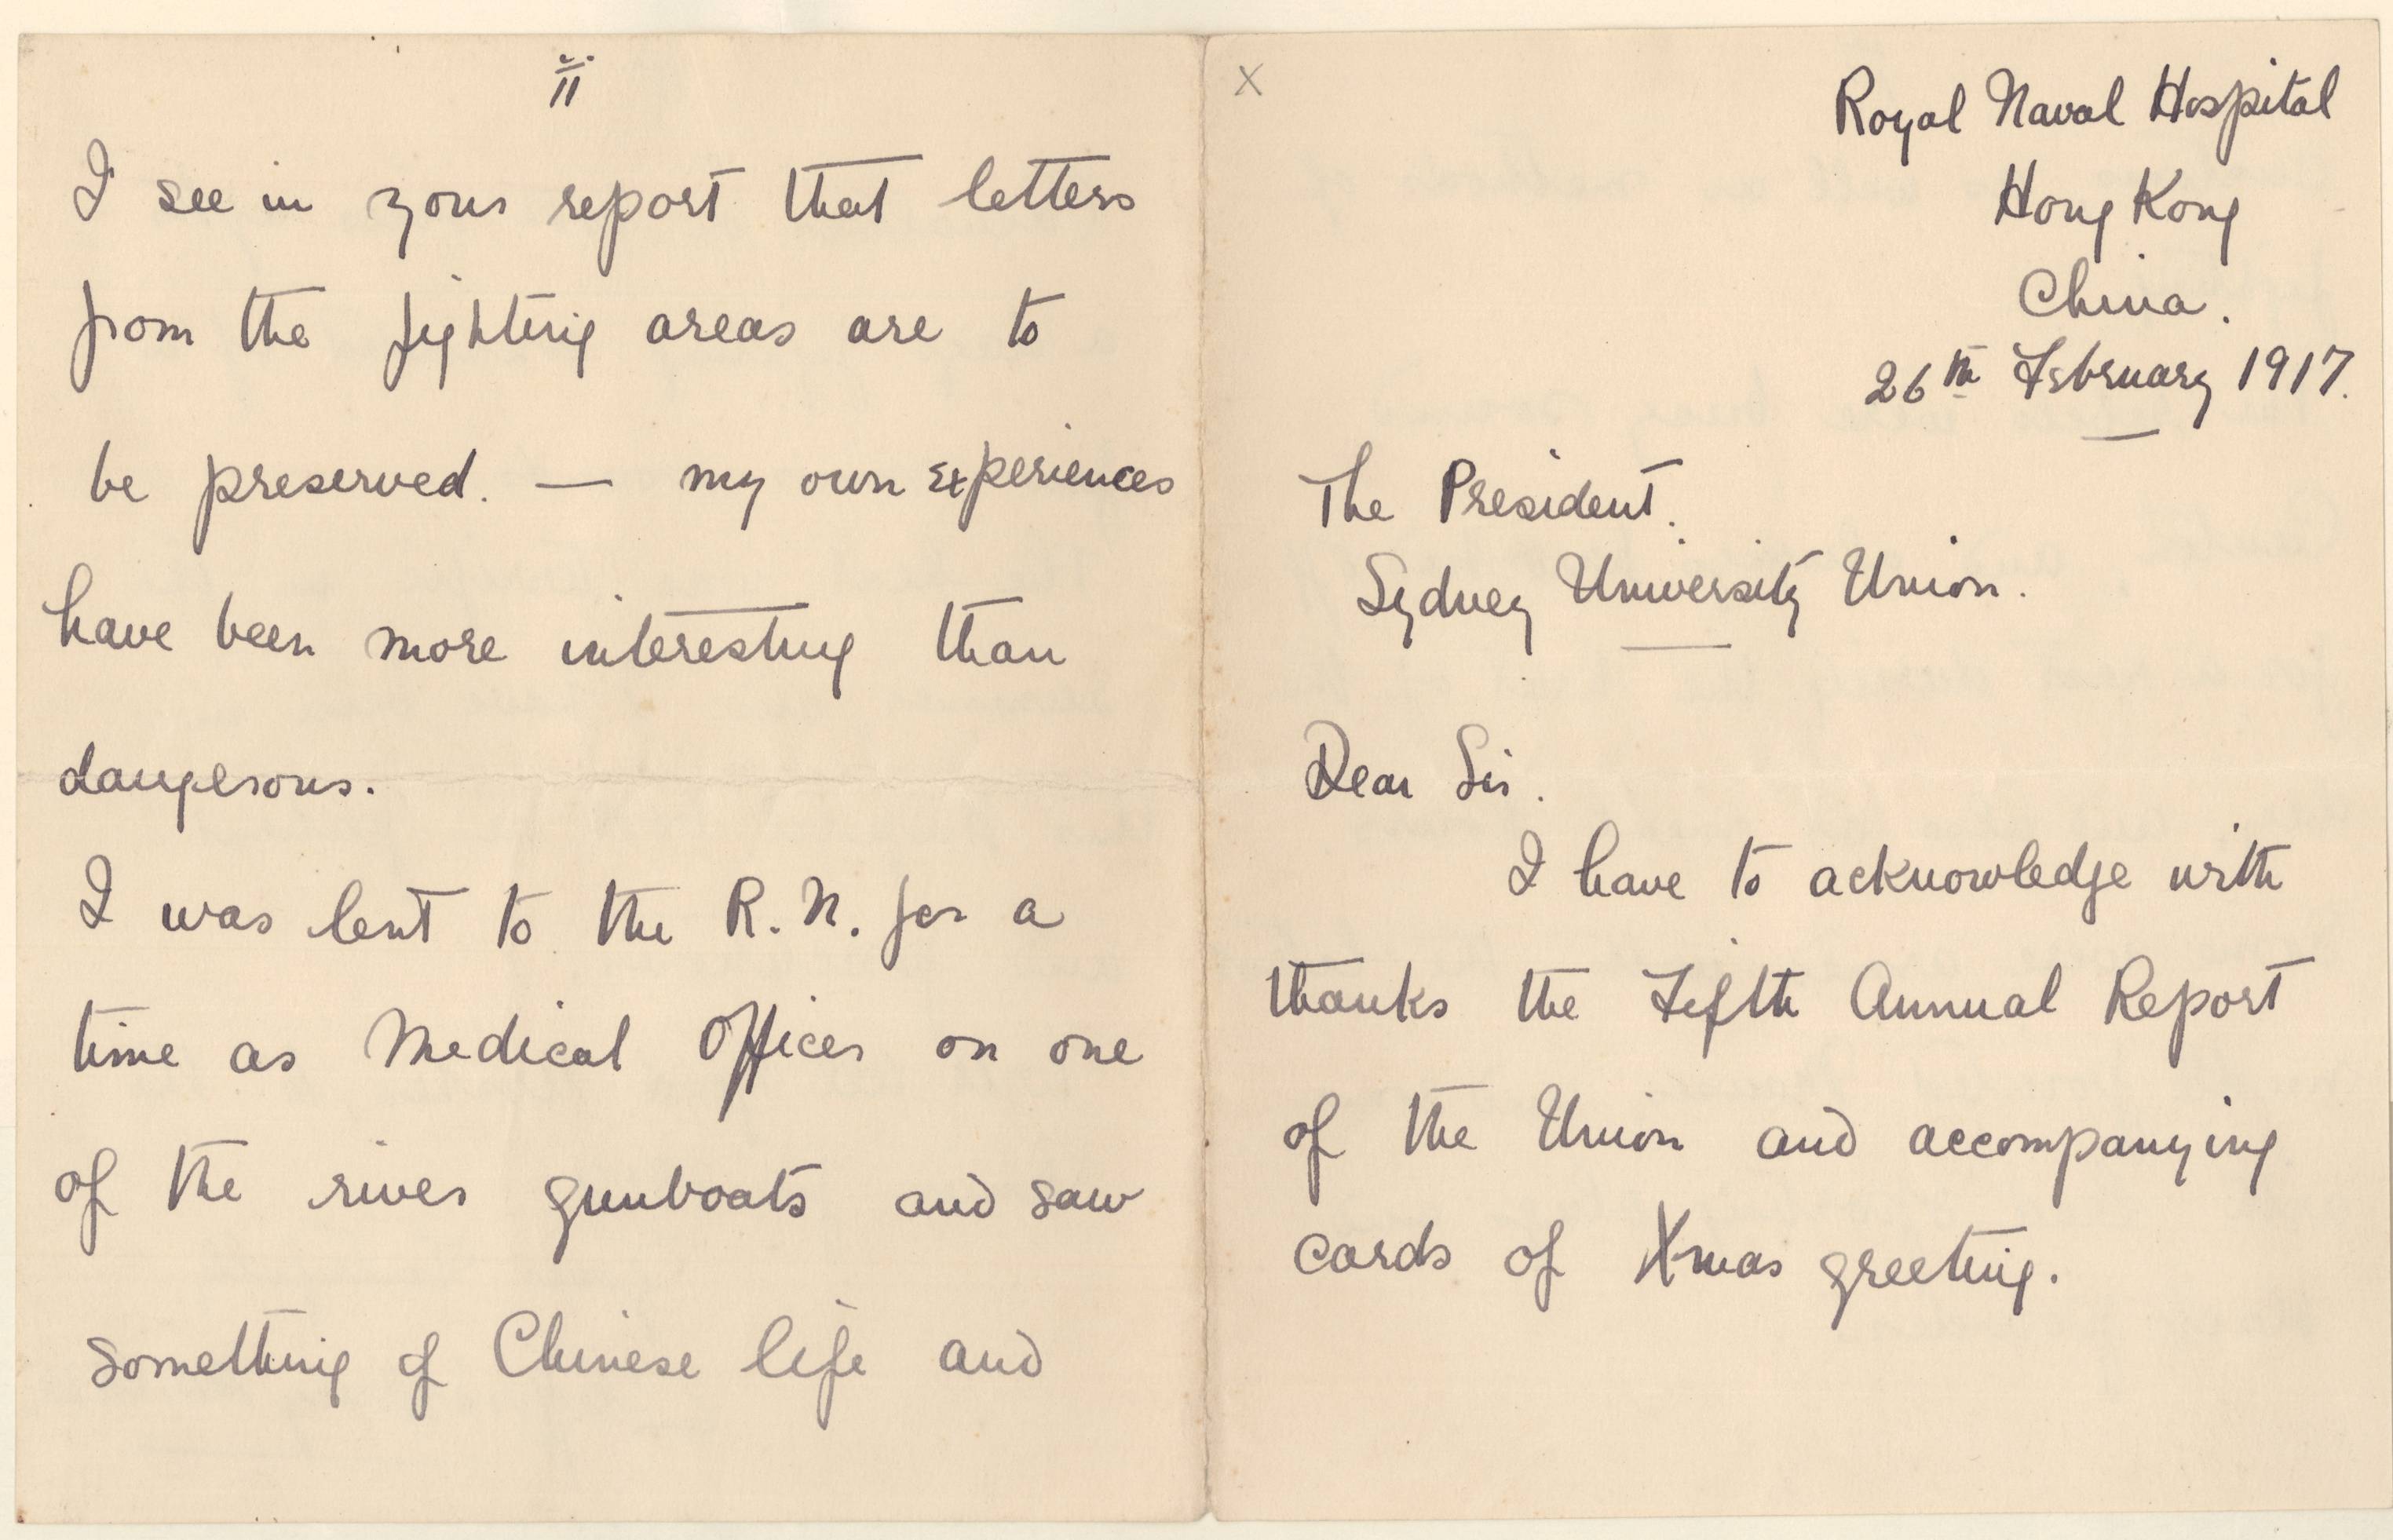 X
Royal Naval Hospital
Hong Kong
China.
26th February 1917.
The President.
Sydney University Union.
Dear Sir.
I have to acknowledge with
thanks the Fifth Annual Report
of the Union and accompanying
cards of Xmas greeting.
ii
I see in your report that letters
from the fighting areas are to
be preserved. — my own experiences
have been more interesting than
dangerous.
I was lent to the R.N. for a
time as Medical Officer on one
of the river gunboats and saw
something of Chinese life and